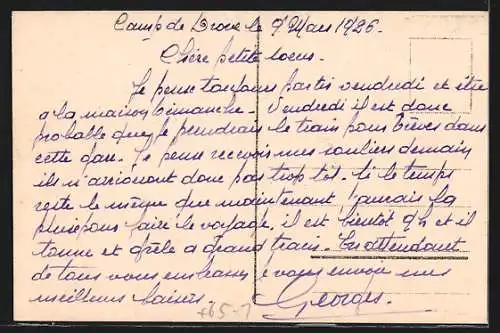 Camp de Brou le 9 Mars 1926.
Chère petite soeur.
Je pense toujours partir vendredi et être
a la maison Dimanche. Vendredi il est donc
probable que je prendrais le train pour dans
cette gare. Je pense recevoir mes souliers demain
ils n'arrioront donc pas trop tôt. Si le temps
reste le même que maintenant j'aurais la
pluie pour faire le voyage. il est bientôt 9h et il
tonne et grèle a grand train. En attendant
de tous vous embrasser je vous envoie mes
meilleurs baisers. Georges.
+65-1